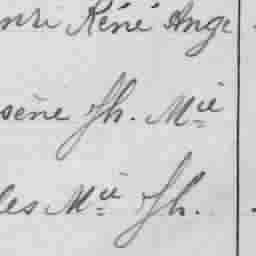 nri Réné Ange
sène Jh. Mie
les Mie Jh.